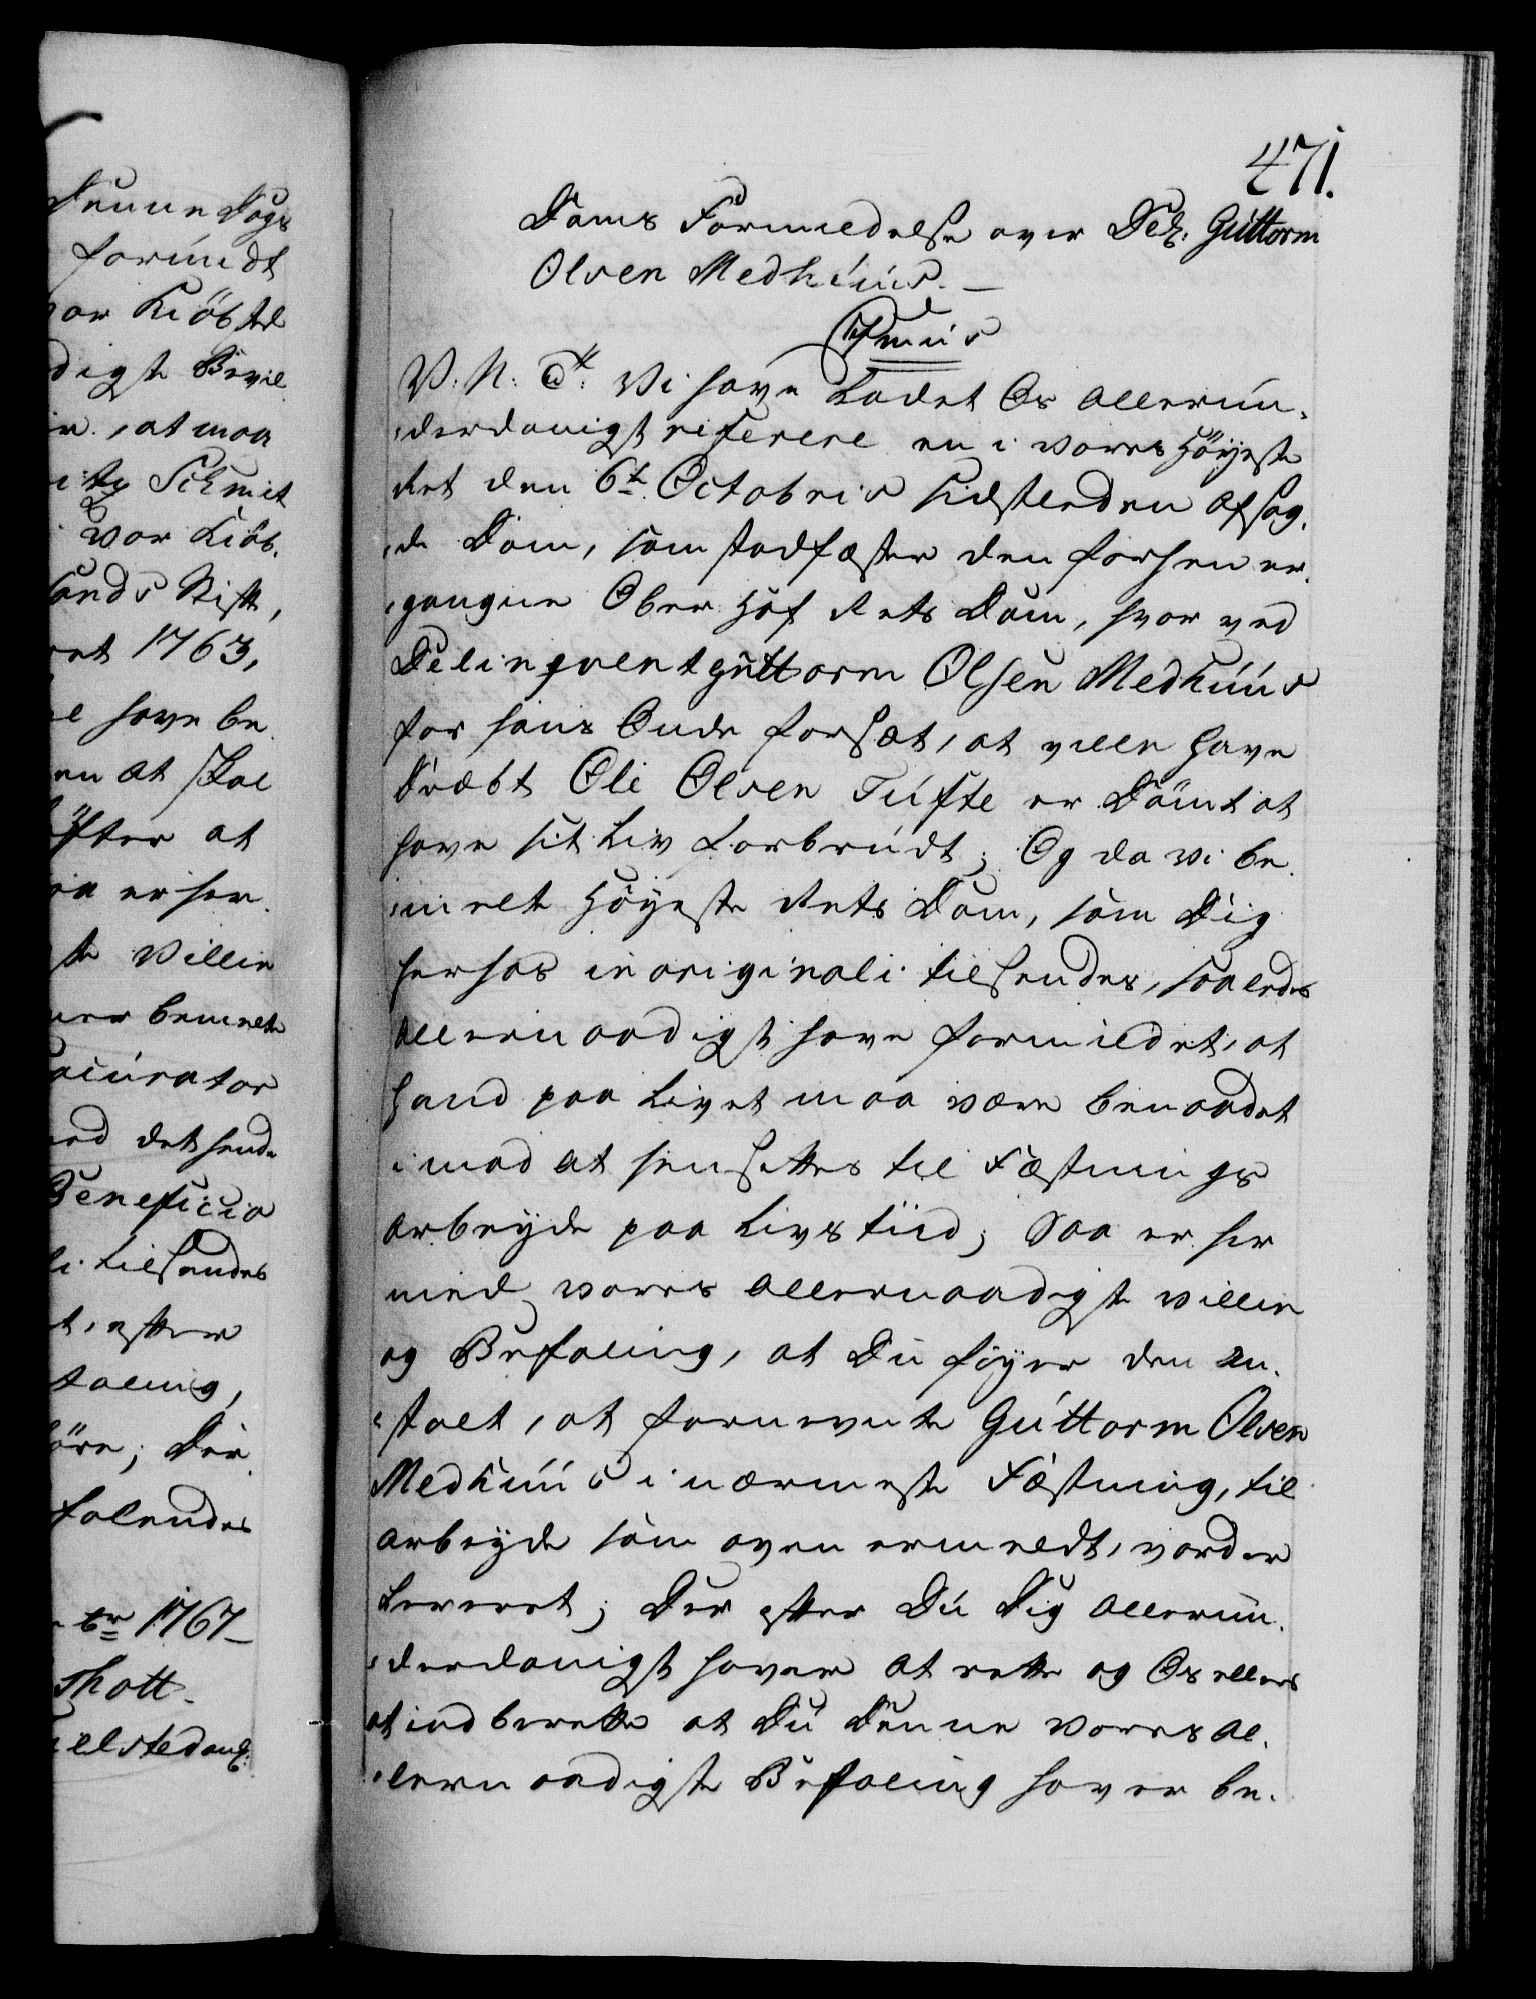 Denne Dags
formeldt
vor Kiöbsted
digst Bevil
at maa
Schmit
vor Kiöb.
lands Stift,
1763,
have be
en at skal
efter at
er her
ste Villie
bemelte
ocurator
ved det sende
Beneficio
tilsendes
efter
taling,
öre; Der
falendes
br 1767
Thott.
elsted auf:
471.
Doms Formildelse over Del: Guttorm
Olsen Medhuus.
V. N. G: Vi have Ladet Os allerun-
derdanigst referere en i vores Höyeste
Ret den 6te Octobris sidstleden afsag-
de Dom, som stadfæster den forhen er-
gangne Ober Hof Rets Dom, hvor ved
Delinqvent Guttorm Olsen Medhuus
for hans Onde forsæt, at ville have
Dræbt Ole Olsen Tufte er Dömt at
have sit Liv forbrudt; Og da vi be-
melte Höyeste Rets Dom, som Dig
herhos in originali tilsendes, saaledes
allernaadigst have formildet, at
hand paa Livet maa være benaadet
imod at hensettes til Fæstnings
arbeyde paa Livs tiid; Saa er her
med vores allernaadigste villie
og Befaling, at Du föyer den An-
stalt, at fornevnte Guttorm Olsen
Medhuus i nærmeste Fæstning, til
arbeyde som oven ermeldt, vorder
leveret; Der efter Du Dig allerun-
derdanigst haver at rette og Os ellers
at indberette at Du Denne vores Al-
lernaadigste Befaling haver be-